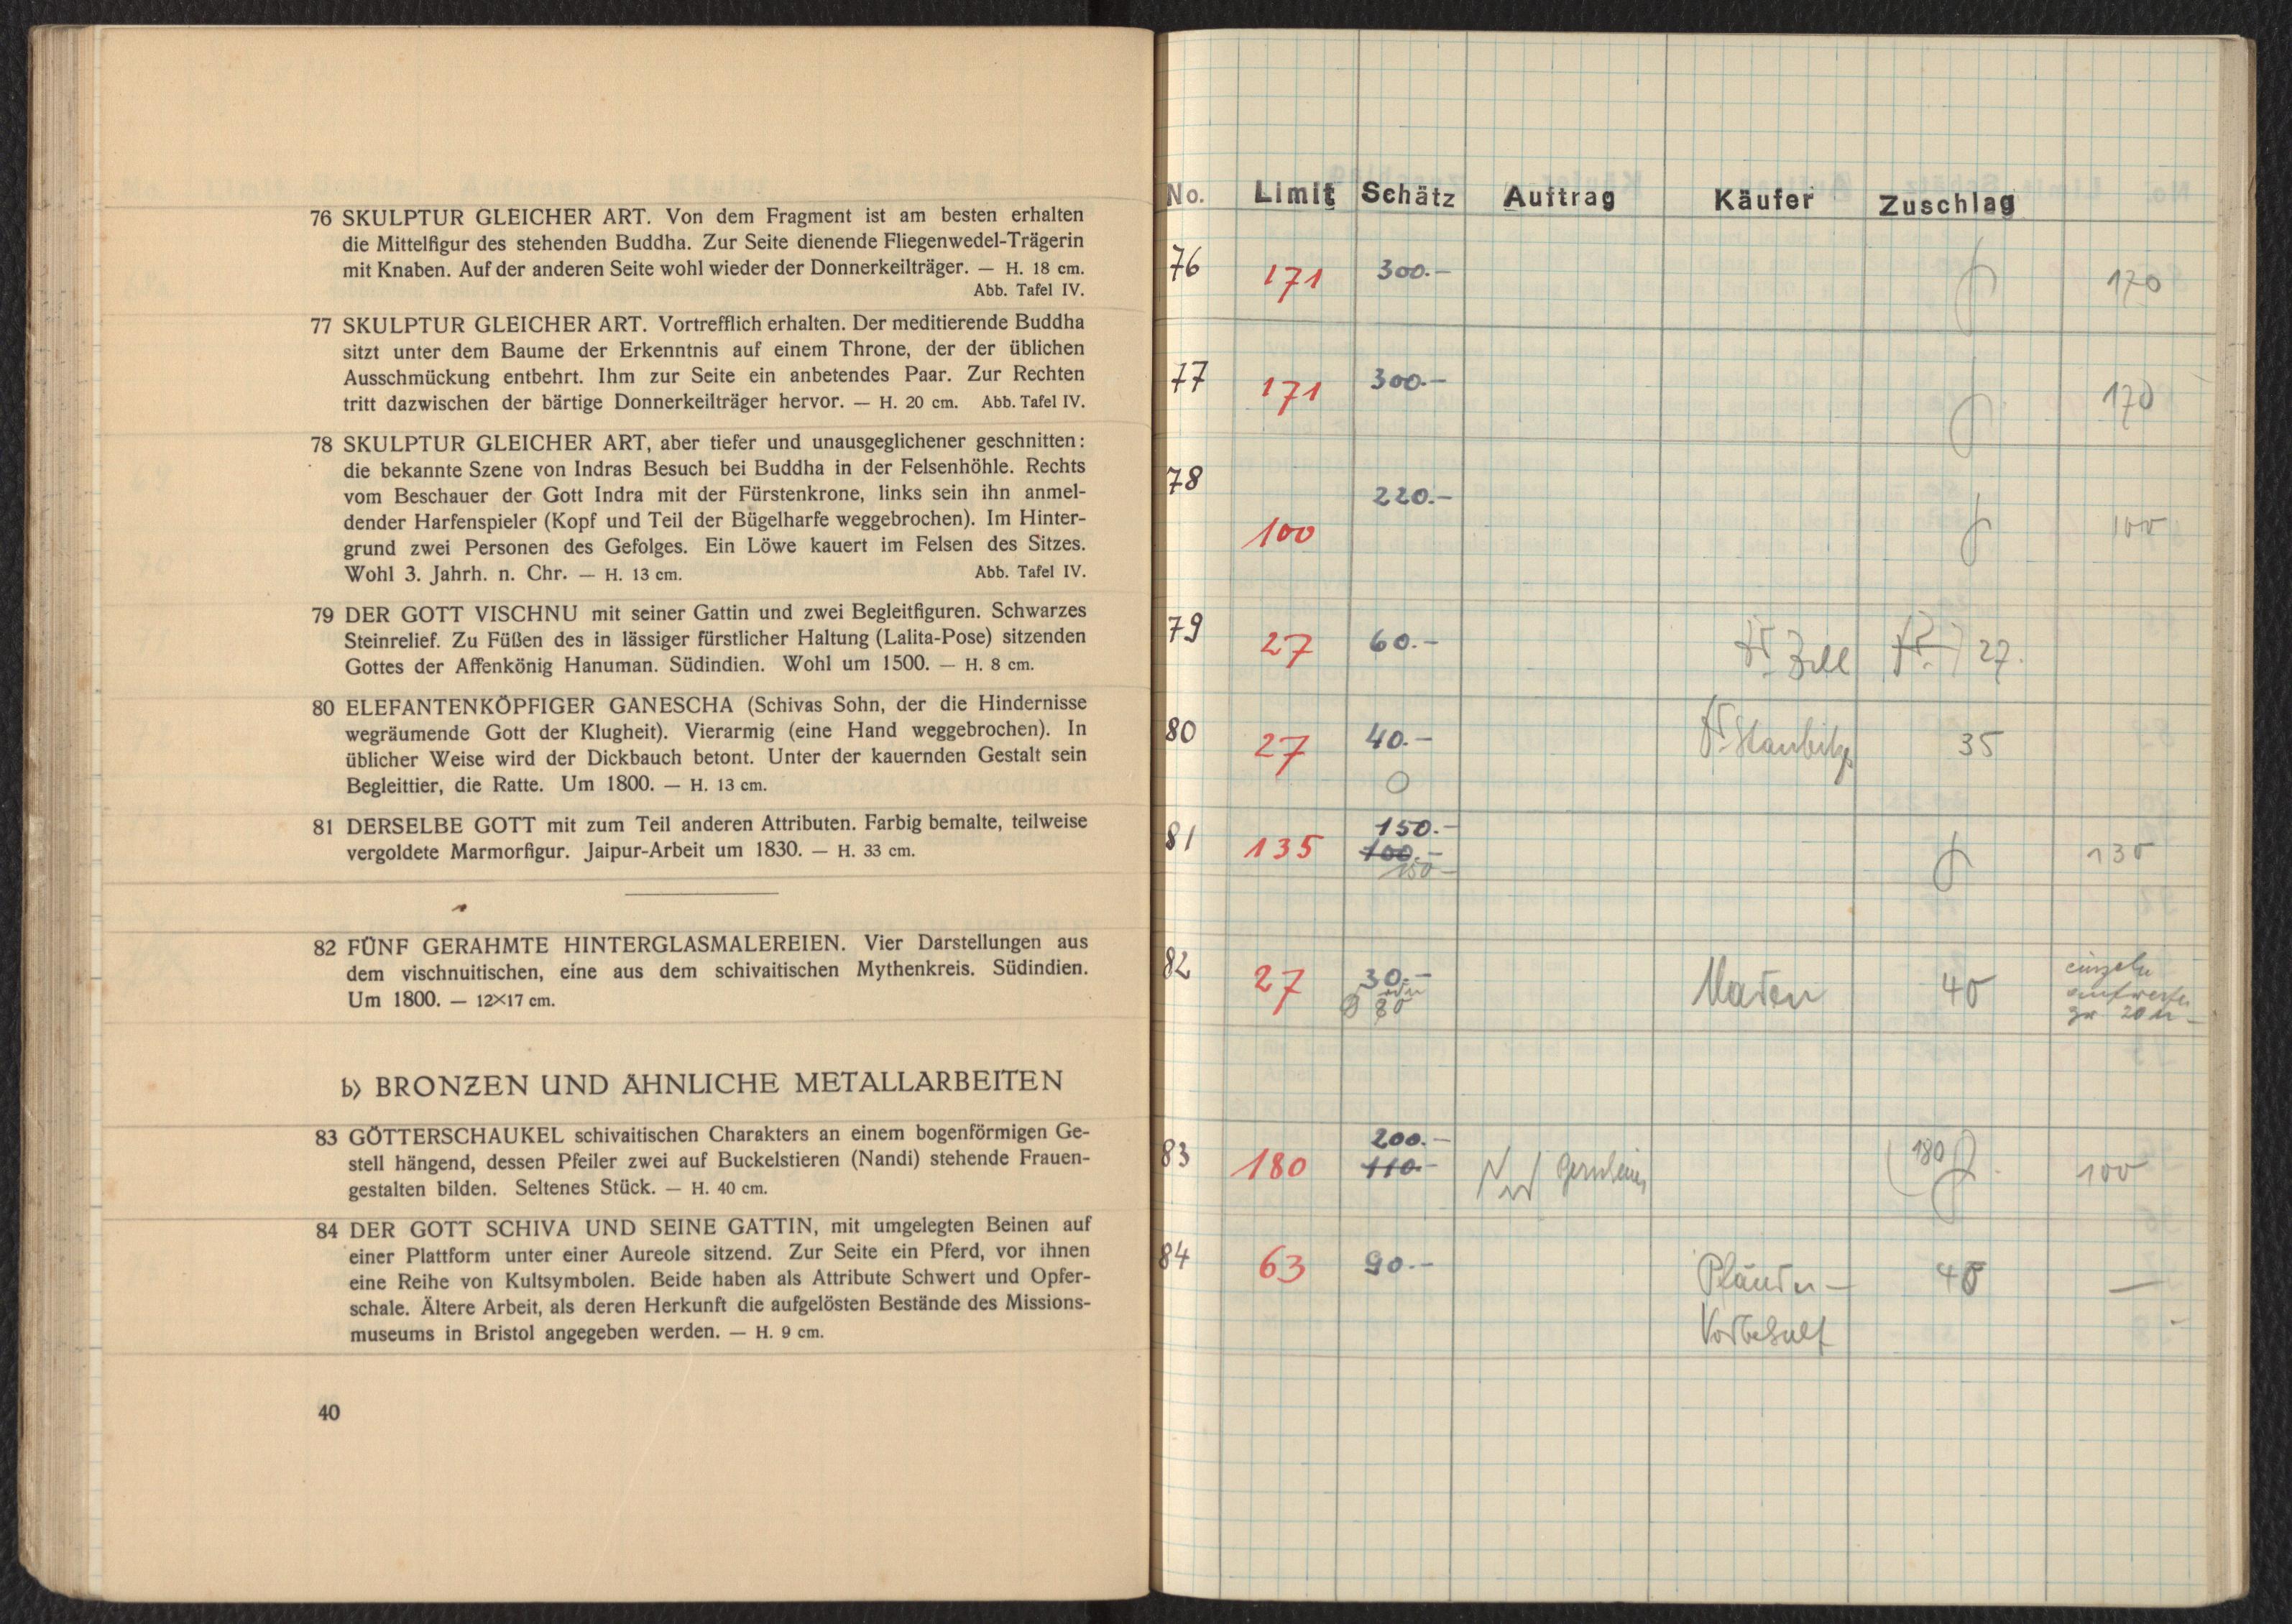 76 SKULPTUR GLEICHER ART. Von dem Fragment ist am besten erhalten
die Mittelfigur des stehenden Buddha. Zur Seite dienende Fliegenwedel-Trägerin
mit Knaben. Auf der anderen Seite wohl wieder der Donnerkeilträger. — H. 18 cm.
Abb. Tafel IV.
77 SKULPTUR GLEICHER ART. Vortrefflich erhalten. Der meditierende Buddha
sitzt unter dem Baume der Erkenntnis auf einem Throne, der der üblichen
Ausschmückung entbehrt. Ihm zur Seite ein anbetendes Paar. Zur Rechten
tritt dazwischen der bärtige Donnerkeilträger hervor. — H. 20 cm. Abb. Tafel IV.
78 SKULPTUR GLEICHER ART, aber tiefer und unausgeglichener geschnitten:
die bekannte Szene von Indras Besuch bei Buddha in der Felsenhöhle. Rechts
vom Beschauer der Gott Indra mit der Fürstenkrone, links sein ihn anmel-
dender Harfenspieler (Kopf und Teil der Bügelharfe weggebrochen). Im Hinter-
grund zwei Personen des Gefolges. Ein Löwe kauert im Felsen des Sitzes.
Wohl 3. Jahrh. n. Chr. — H. 13 cm. Abb. Tafel IV.
79 DER GOTT VISCHNU mit seiner Gattin und zwei Begleitfiguren. Schwarzes
Steinrelief. Zu Füßen des in lässiger fürstlicher Haltung (Lalita-Pose) sitzenden
Gottes der Affenkönig Hanuman. Südindien. Wohl um 1500. — H. 8 cm.
80 ELEFANTENKÖPFIGER GANESCHA (Schivas Sohn, der die Hindernisse
wegräumende Gott der Klugheit). Vierarmig (eine Hand weggebrochen). In
üblicher Weise wird der Dickbauch betont. Unter der kauernden Gestalt sein
Begleittier, die Ratte. Um 1800. — H. 13 cm.
81 DERSELBE GOTT mit zum Teil anderen Attributen. Farbig bemalte, teilweise
vergoldete Marmorfigur. Jaipur-Arbeit um 1830. — H. 33 cm.
82 FÜNF GERAHMTE HINTERGLASMALEREIEN. Vier Darstellungen aus
dem vischnuitischen, eine aus dem schivaitischen Mythenkreis. Südindien.
Um 1800. — 12×17 cm.
b) BRONZEN UND ÄHNLICHE METALLARBEITEN
83 GÖTTERSCHAUKEL schivaitischen Charakters an einem bogenförmigen Ge-
stell hängend, dessen Pfeiler zwei auf Buckelstieren (Nandi) stehende Frauen-
gestalten bilden. Seltenes Stück. — H. 40 cm.
84 DER GOTT SCHIVA UND SEINE GATTIN, mit umgelegten Beinen auf
einer Plattform unter einer Aureole sitzend. Zur Seite ein Pferd, vor ihnen
eine Reihe von Kultsymbolen. Beide haben als Attribute Schwert und Opfer-
schale. Ältere Arbeit, als deren Herkunft die aufgelösten Bestände des Missions-
museums in Bristol angegeben werden. — H. 9 cm.
40
No. Limit Schätz Auftrag Käufer Zuschlag
76 171 300.- 170
77 171 300.- 170
78 100 220.- 100
79 27 60.- 27.
80 27 40.- 35
81 135 150.- 100.- 150 130
82 27 30.- 80 40 einzeln
83 180 200.- 110.- 180 100
84 63 90.- 40 —
Vorbehalt